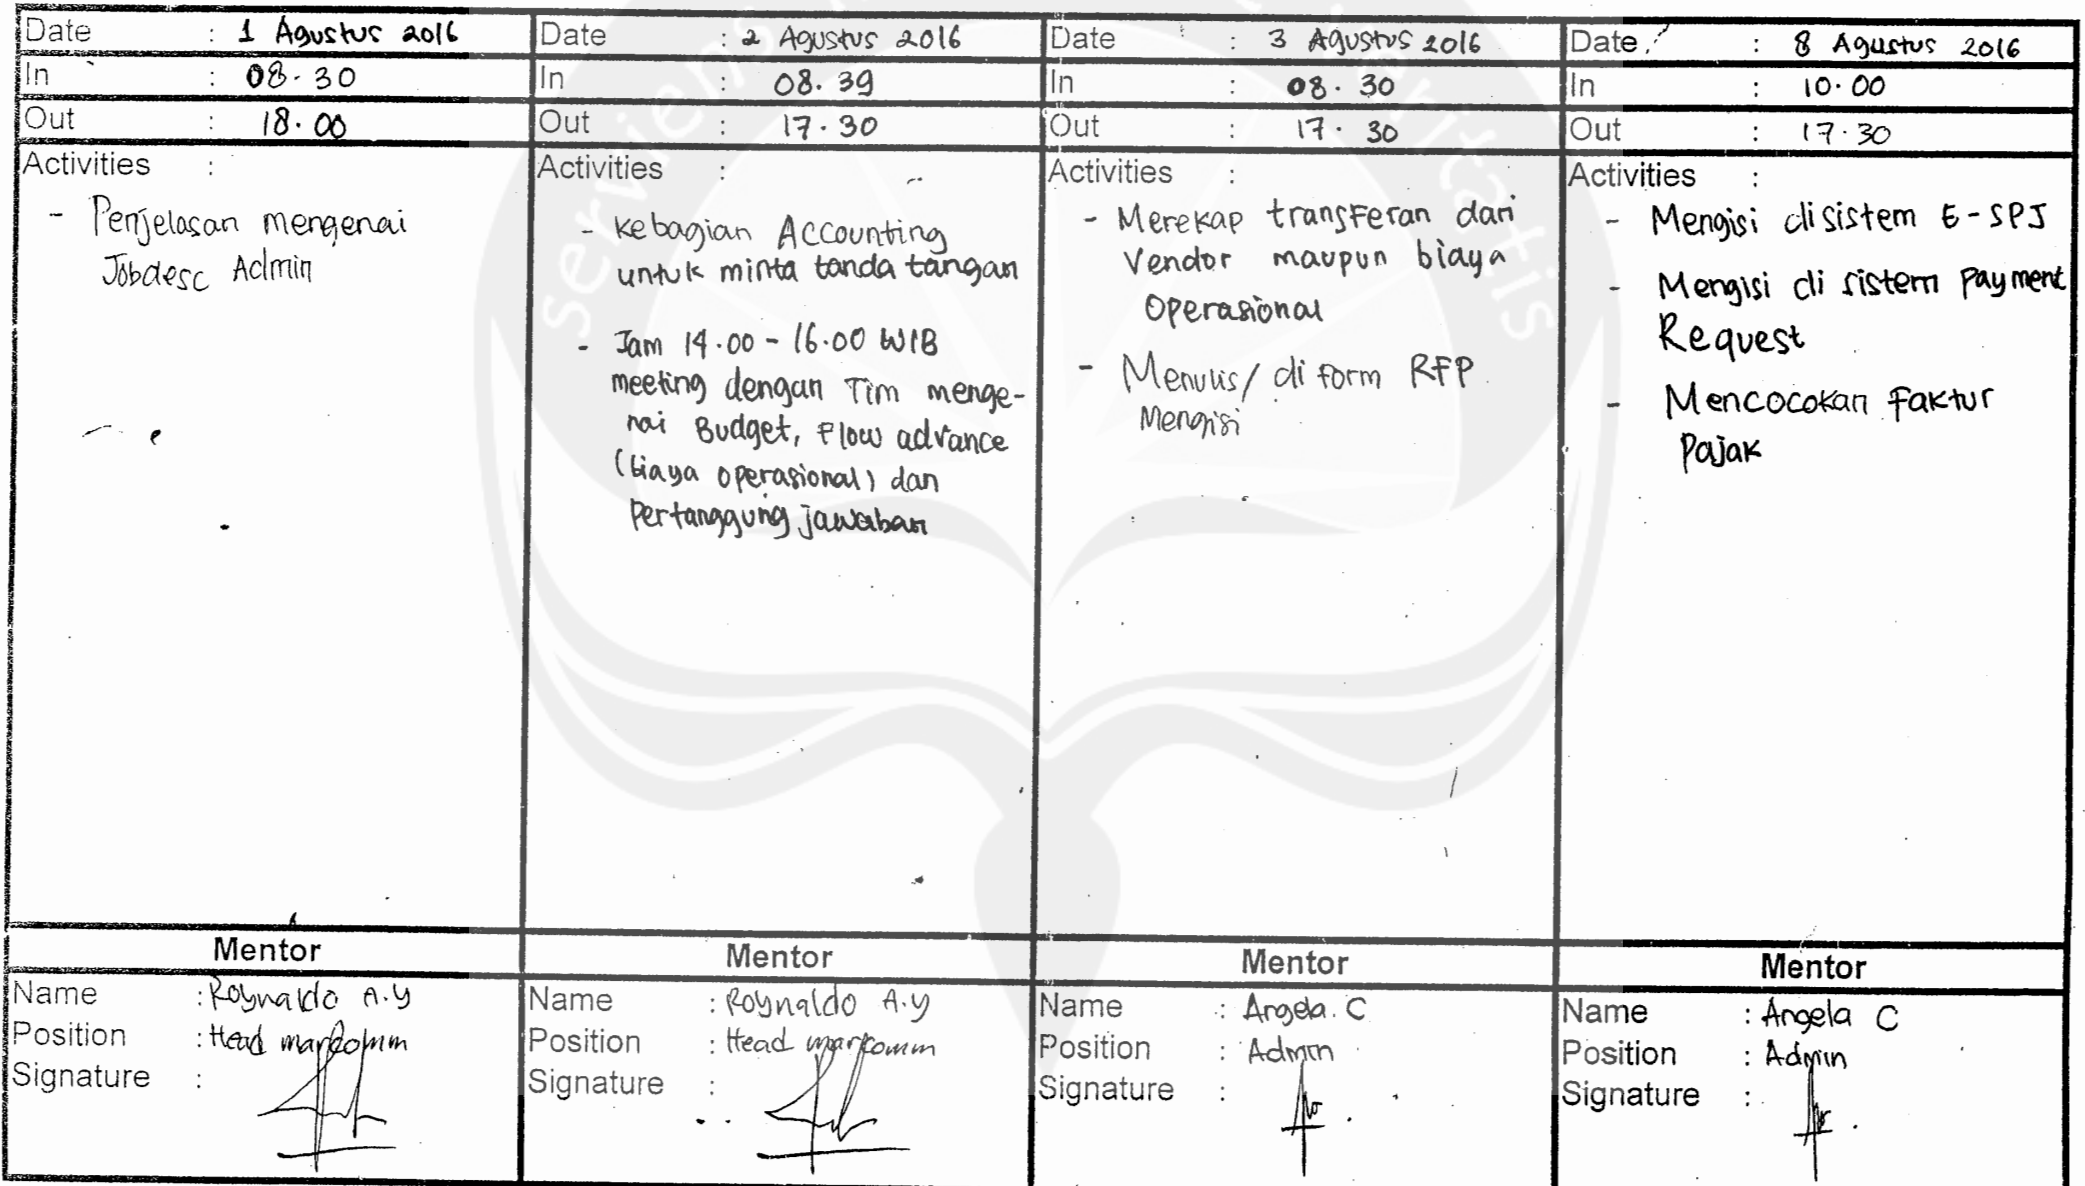 Date : 1 Agustus 2016
In : 08.30
Out : 18.00
Activities :
- Penjelasan mengenai
Jobdesc Admin
Mentor
Name : Roynaldo A.Y
Position : Head markomm
Signature :
Date : 2 Agustus 2016
In : 08.39
Out : 17.30
Activities :
- kebagian Accounting
untuk minta tanda tangan
- Jam 14.00 - 16.00 WIB
meeting dengan Tim menge-
nai Budget, Flow advance
(biaya operasional) dan
Pertanggung jawaban
Mentor
Name : Roynaldo A.Y
Position : Head markomm
Signature :
Date : 3 Agustus 2016
In : 08.30
Out : 17.30
Activities :
- Merekap transferan dari
Vendor maupun biaya
Operasional
- Menulis/ di form RFP
Mengisi
Mentor
Name : Angela. C
Position : Admin
Signature :
Date : 8 Agustus 2016
In : 10.00
Out : 17.30
Activities :
- Mengisi di sistem E-SPJ
- Mengisi di sistem Payment
Request
- Mencocokan Faktur
Pajak
Mentor
Name : Angela C
Position : Admin
Signature :